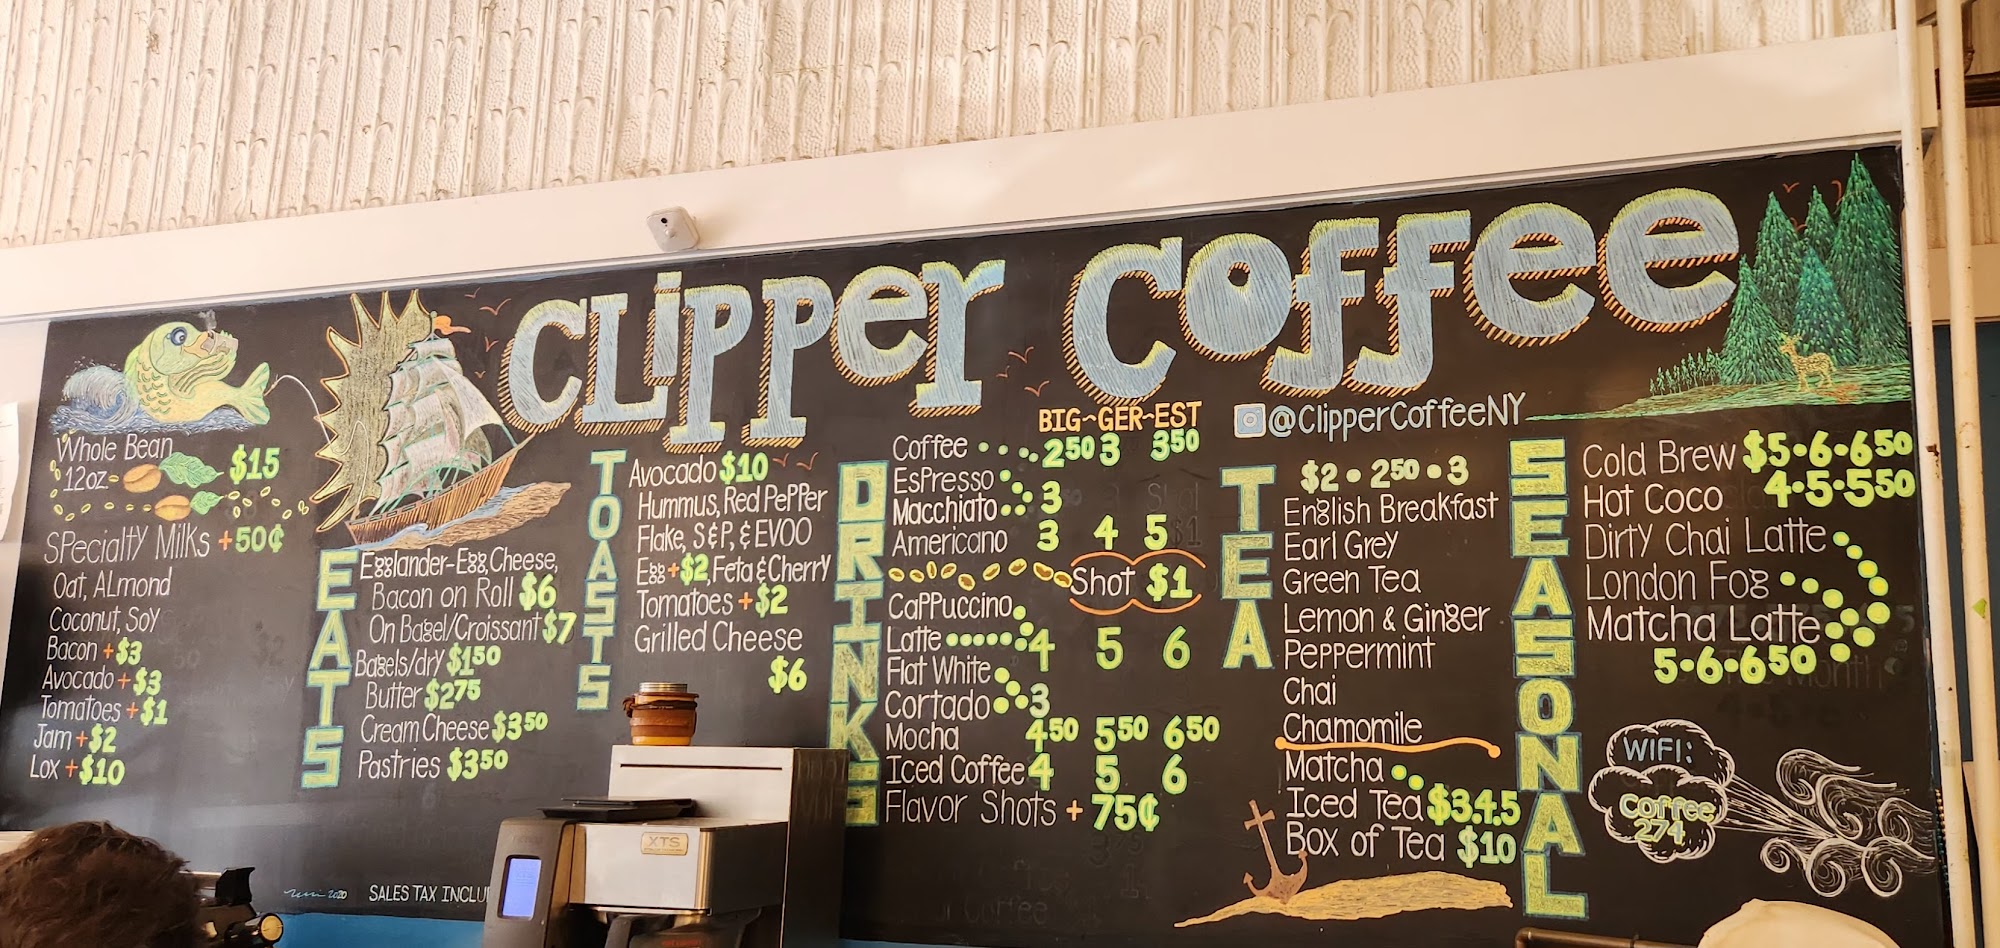 CLiPPer COFFee
BIG~GER~EST
@CLIPPERCOFFEENY
Whole Bean
12oz. $15
SPecialty Milks +50¢
Oat, ALmond
Coconut, Soy
Bacon +$3
Avocado +$3
Tomatoes +$1
Jam +$2
Lox +$10
EATS
Egglander-Egg, Cheese,
Bacon on Roll $6
On Bagel/Croissant $7
Bagels/dry $150
Butter $275
Cream Cheese $350
Pastries $350
TOASTS
Avocado $10
Hummus, Red PePPer
Flake, S&P, & EVOO
Egg +$2, Feta & Cherry
Tomatoes +$2
Grilled Cheese
$6
DRINKS
Coffee 250 3 350
EsPresso
Macchiato 3
Americano 3 4 5
Shot $1
CaPPuccino
Latte 4 5 6
Flat White
Cortado 3
Mocha 450 550 650
Iced Coffee 4 5 6
Flavor Shots + 75¢
TEA
$2 • 250 • 3
English Breakfast
Earl Grey
Green Tea
Lemon & Ginger
Peppermint
Chai
Chamomile
Matcha
Iced Tea $3.4.5
Box of Tea $10
SEASONAL
Cold Brew $5•6•650
Hot Coco 4•5•550
Dirty Chai Latte
London Fog
Matcha Latte
5•6•650
WIFI:
Coffee
274
2020
SALES TAX INCLU
XTS